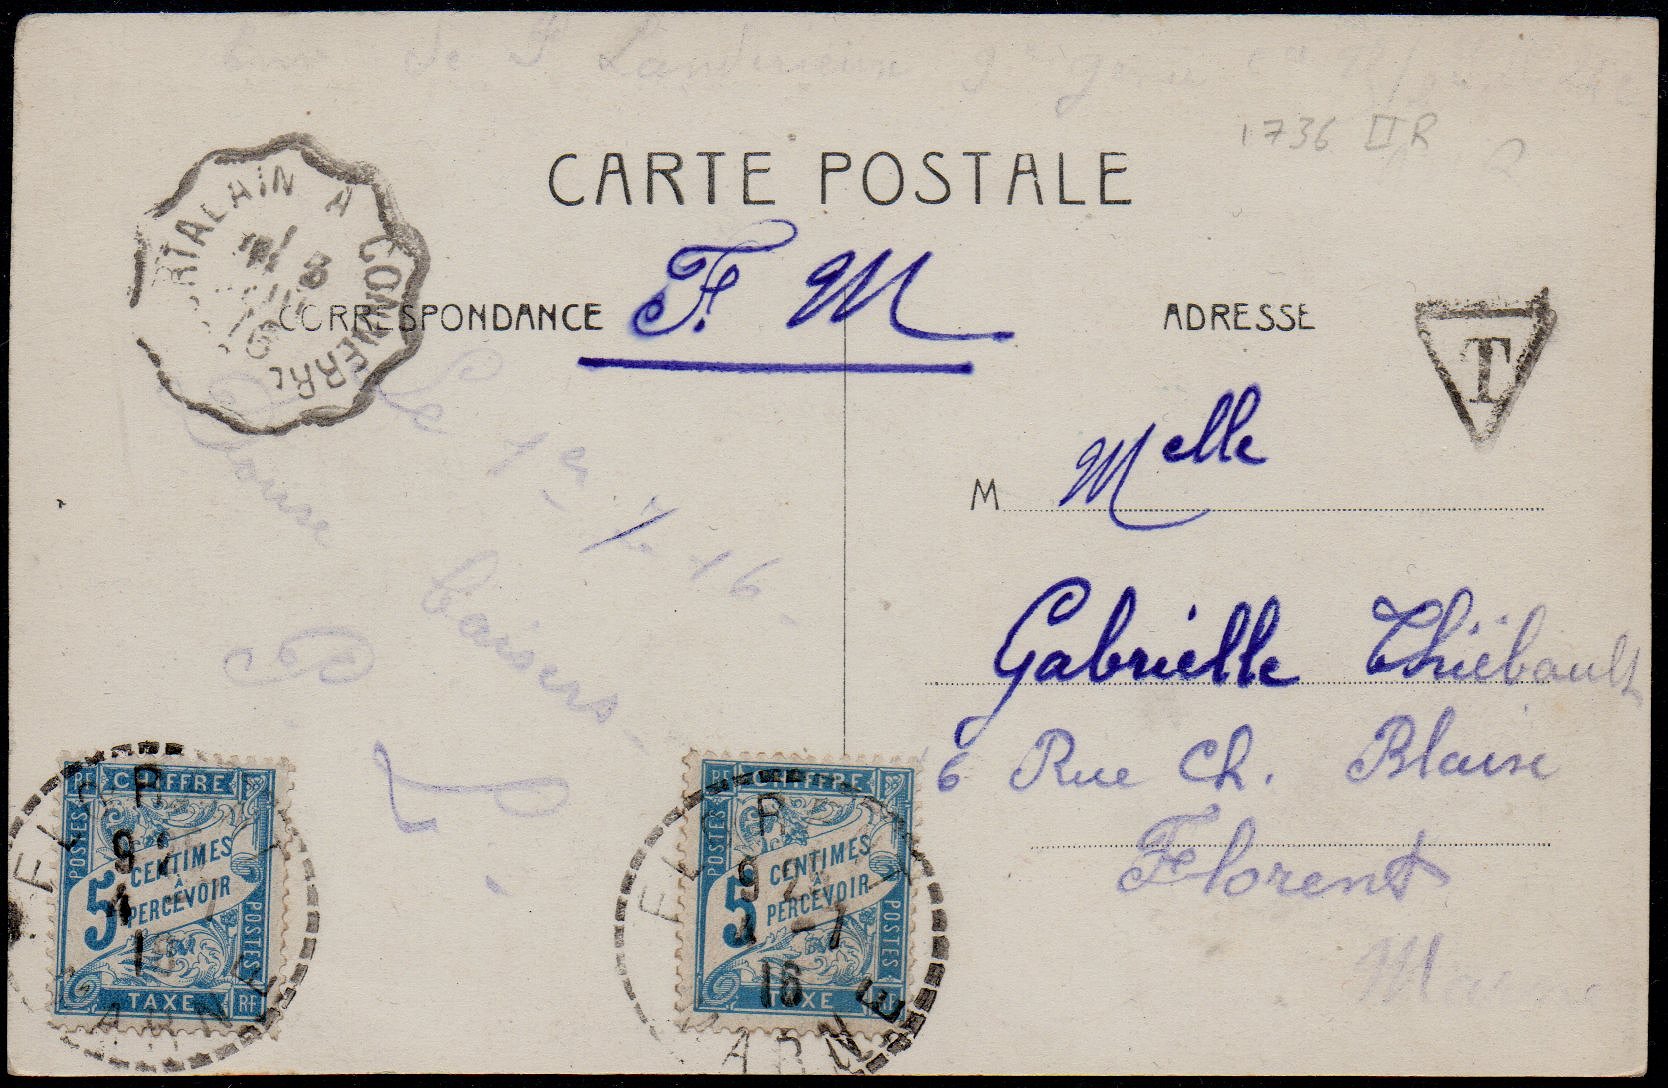 1736 II R
CARTE POSTALE
F. M
CORRESPONDANCE
ADRESSE
T
Le 1er 7 16
Douse
Baisers
M Melle
Gabrielle Thiébault
6 Rue Ch. Blaise
Florent
Marne
A CONNERRE
3
16
RF CHIFFRE
POSTES
5 CENTIMES
À
PERCEVOIR
POSTES
TAXE RF
FLORENT
9
4
16
MARNE
RF CHIFFRE RF
POSTES
5 CENTIMES
À
PERCEVOIR
POSTES
TAXE RF
FLORENT
9
4 -7
16
MARNE